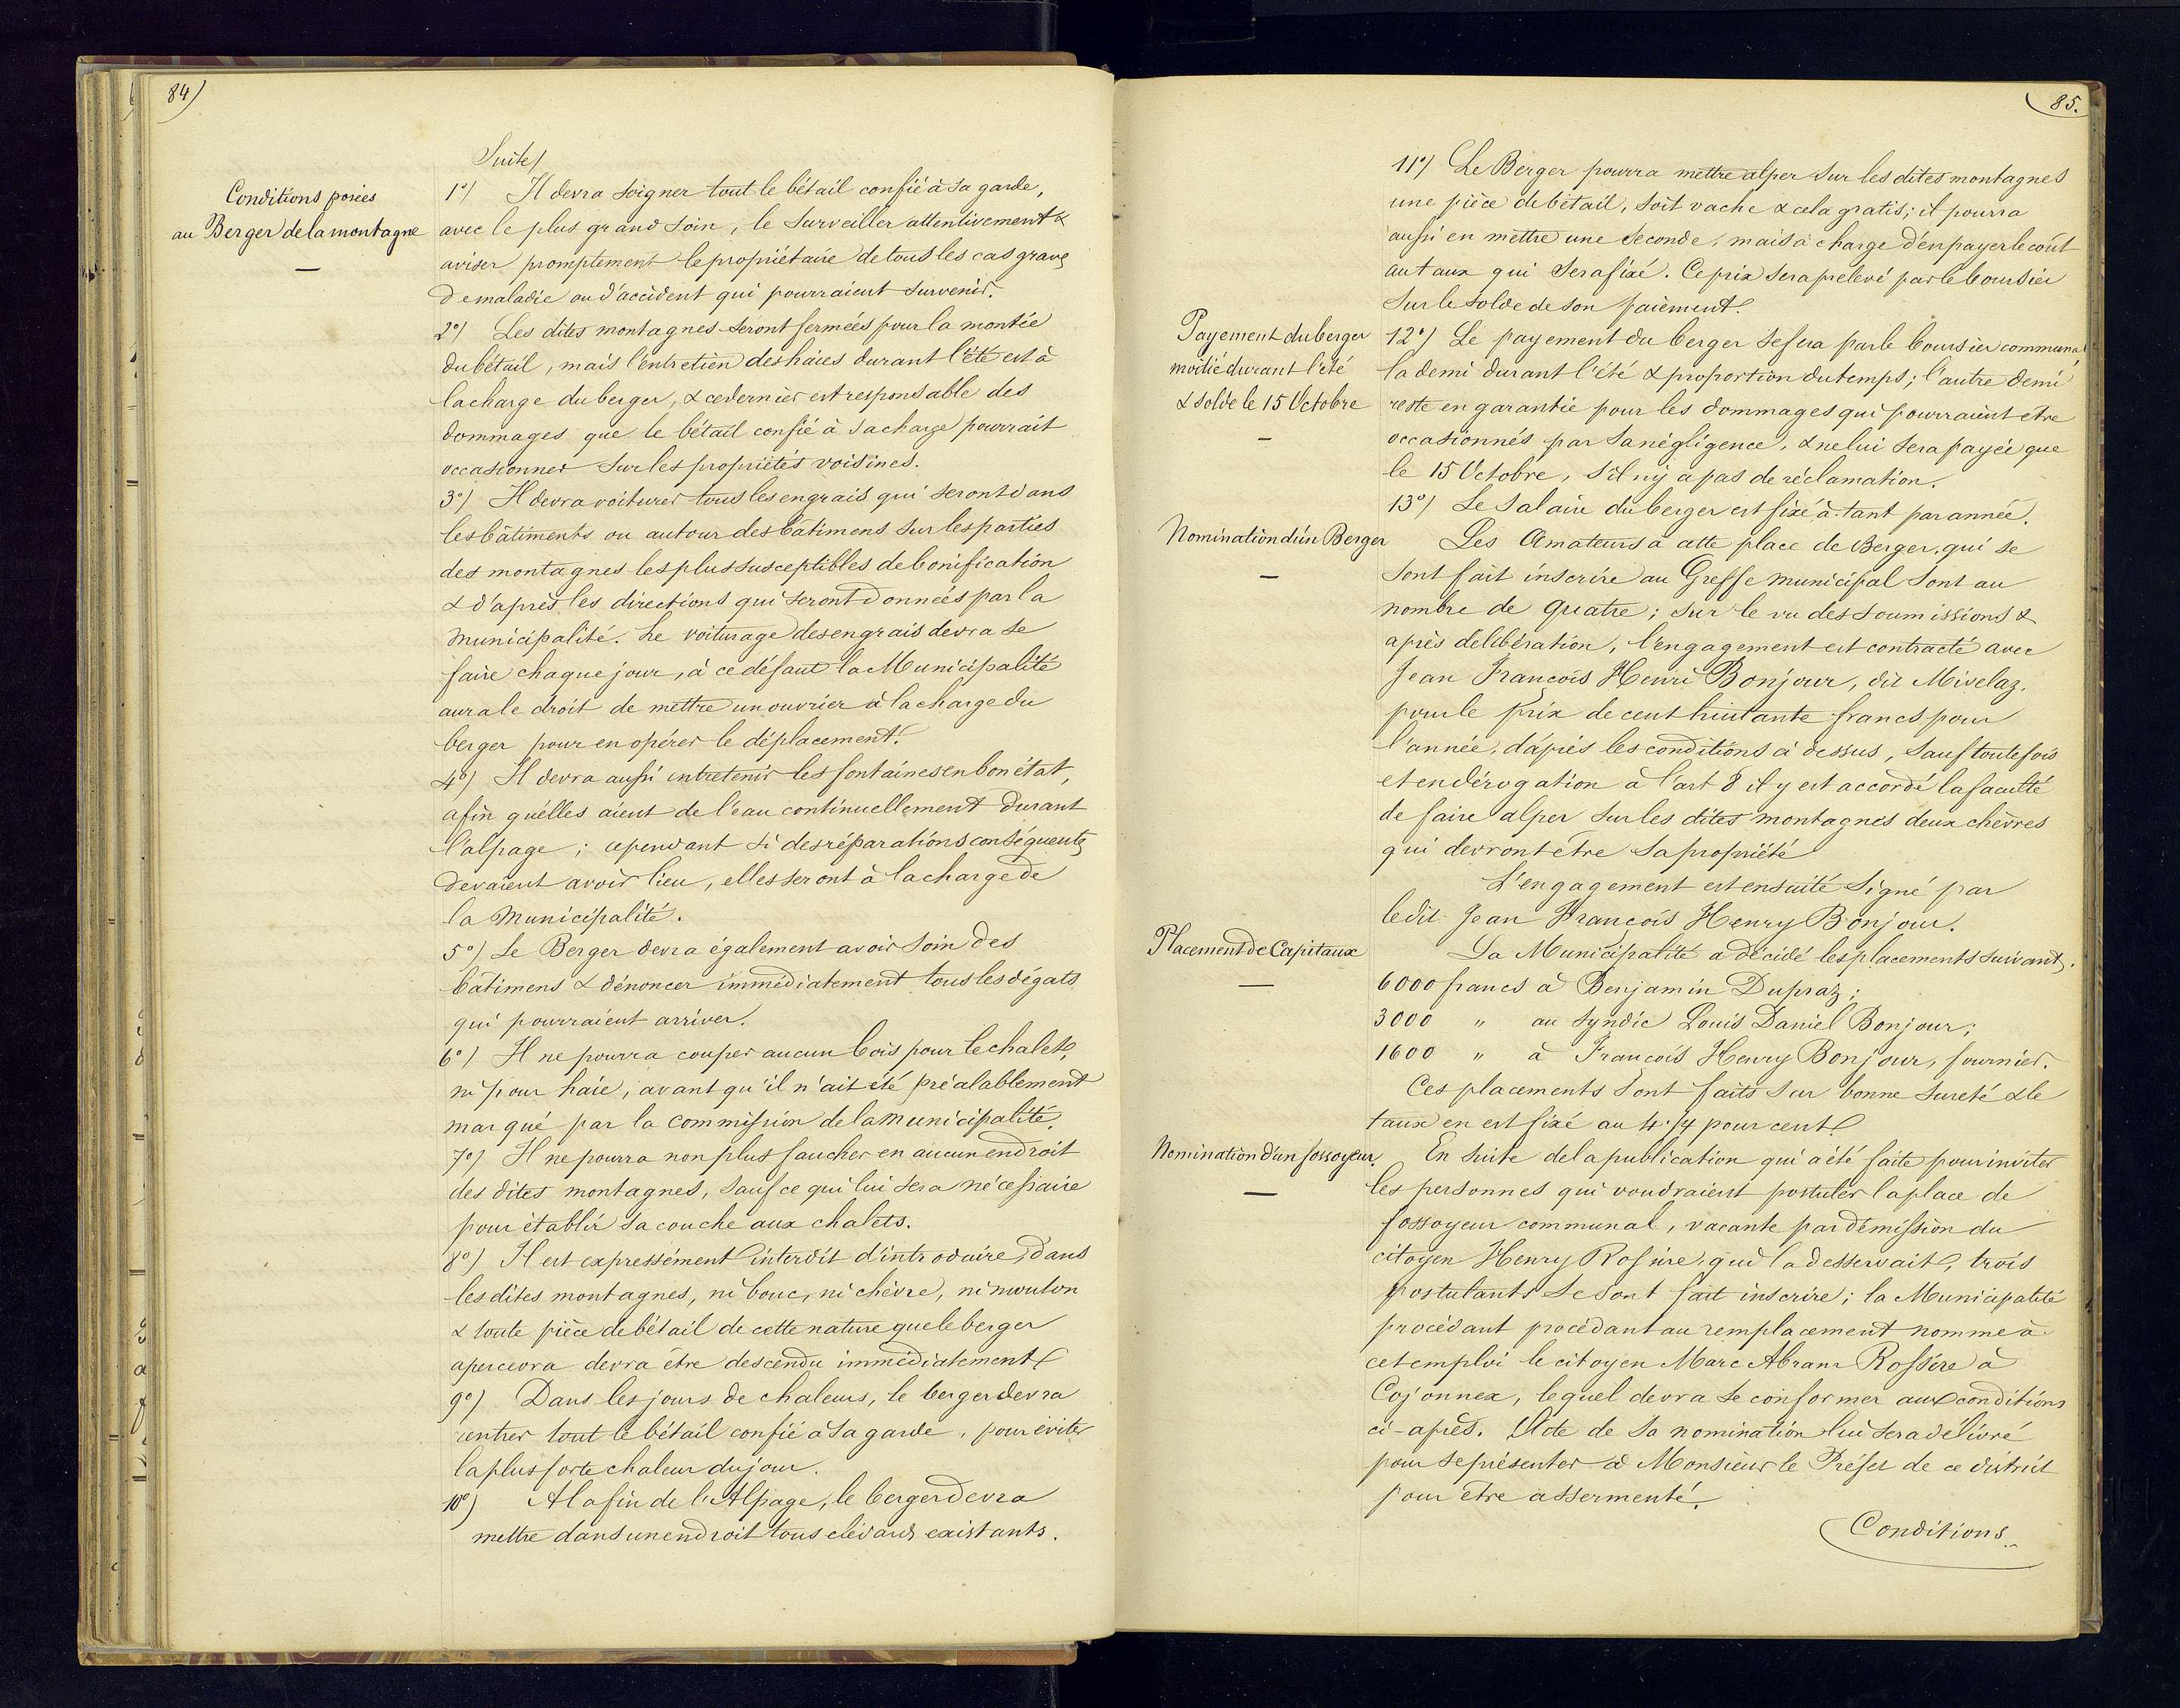 84)
Suite/
Conditions posées
au Berger de la montagne
—
1°/ Il devra soigner tout le bétail confié à sa garde,
avec le plus grand soin, le surveiller attentivement &
aviser promptement le propriétaire de tous les cas graves
de maladie ou d'accident qui pourraient survenir.
2°/ Les dites montagnes seront fermées pour la montée
du bétail, mais l'entretien des haies durant l'été est à
la charge du berger, & ce dernier est responsable des
dommages que le bétail confié à sa charge pourrait
occasionner sur les propriétés voisines.
3°/ Il devra voiturer tous les engrais qui seront dans
les bâtiments ou autour des bâtimens sur les parties
des montagnes les plus susceptibles de bonification
& d'après les directions qui seront données par la
Municipalité. Le voiturage des engrais devra se
faire chaque jour, à ce défaut la Municipalité
aura le droit de mettre un ouvrier à la charge du
berger pour en opérer le déplacement.
4°/ Il devra aussi entretenir les fontaines en bon état,
afin qu'elles aient de l'eau continuellement durant
l'alpage ; cependant si des réparations conséquentes
devaient avoir lieu, elles seront à la charge de
la Municipalité.
5°/ Le Berger devra également avoir soin des
bâtimens & dénoncer immédiatement tous les dégats
qui pourraient arriver.
6°/ Il ne pourra couper aucun bois pour le chalet,
ni pour haie, avant qu'il n'ait été préalablement
marqué par la commission de la Municipalité.
7°/ Il ne pourra non plus faucher en aucun endroit
des dites montagnes, sauf ce qui lui sera nécessaire
pour établir sa couche aux chalets.
8°/ Il est expressément interdit d'introduire, dans
les dites montagnes, ni bouc, ni chèvre, ni mouton
& toute pièce de bétail de cette nature que le berger
apercevra devra être descendu immédiatement.
9°/ Dans les jours de chaleurs, le berger devra
rentrer tout le bétail confié à sa garde, pour éviter
la plus forte chaleur du jour.
10°/ A la fin de l'Alpage, le berger devra
mettre dans un endroit tous clédards existants.
85.
11°/ Le Berger pourra mettre alper sur les dites montagnes
une pièce de bétail, soit vache & cela gratis; il pourra
aussi en mettre une seconde, mais à charge d'en payer le coût
au taux qui sera fixé. Ce prix sera prelevé par le boursier
sur le solde de son paiement.
Payement du berger
moitié durant l'été
& solde le 15 Octobre
—
12°/ Le payement du berger se fera par le boursier communal
la demi durant l'été & proportion du temps; l'autre demi
reste en garantie pour les dommages qui pourraient etre
occasionnés par sa négligence, & ne lui sera payée que
le 15 Octobre, s'il n'y a pas de réclamation.
13°/ Le salaire du berger est fixé à tant par année.
Nomination d'un Berger
—
Les Amateurs à cette place de Berger, qui se
sont fait inscrire au Greffe municipal sont au
nombre de quatre; sur le vu des soumissions &
après délibération, l'engagement est contracté avec
Jean François Henri Bonjour, dit Mivelaz.
pour le prix de cent huitante francs pour
l'année, d'après les conditions ci dessus, sauf toutefois
et en dérogation à l'art 8 il y est accordé la faculté
de faire alper sur les dites montagnes deux chèvres
qui devront etre sa propriété
L'engagement est ensuite signé par
le dit Jean François Henry Bonjour.
Placement de Capitaux
—
La Municipalité a décidé les placements suivants.
6000 francs à Benjamin Dupraz ;
3000 " au syndic Louis Daniel Bonjour;
1600 " à François Henry Bonjour, fournier.
Ces placements sont faits sur bonne sureté & le
taux en est fixé au 4 1/4 pour cent.
Nomination d'un fossoyeur.
—
En suite de la publication qui a été faite pour inviter
les personnes qui voudraient postuler la place de
fossoyeur communal, vacante par démission du
citoyen Henry Rossire, qui la desservait, trois
postulants se sont fait inscrire; la Municipalité
procédant procédant au remplacement nomme à
cet emploi le citoyen Marc Abram Rossire à
Cojonnex, lequel devra se conformer aux conditions
ci-après. Acte de sa nomination lui sera délivré
pour se présenter à Monsieur le Préfet de ce district
pour etre assermenté.
Conditions